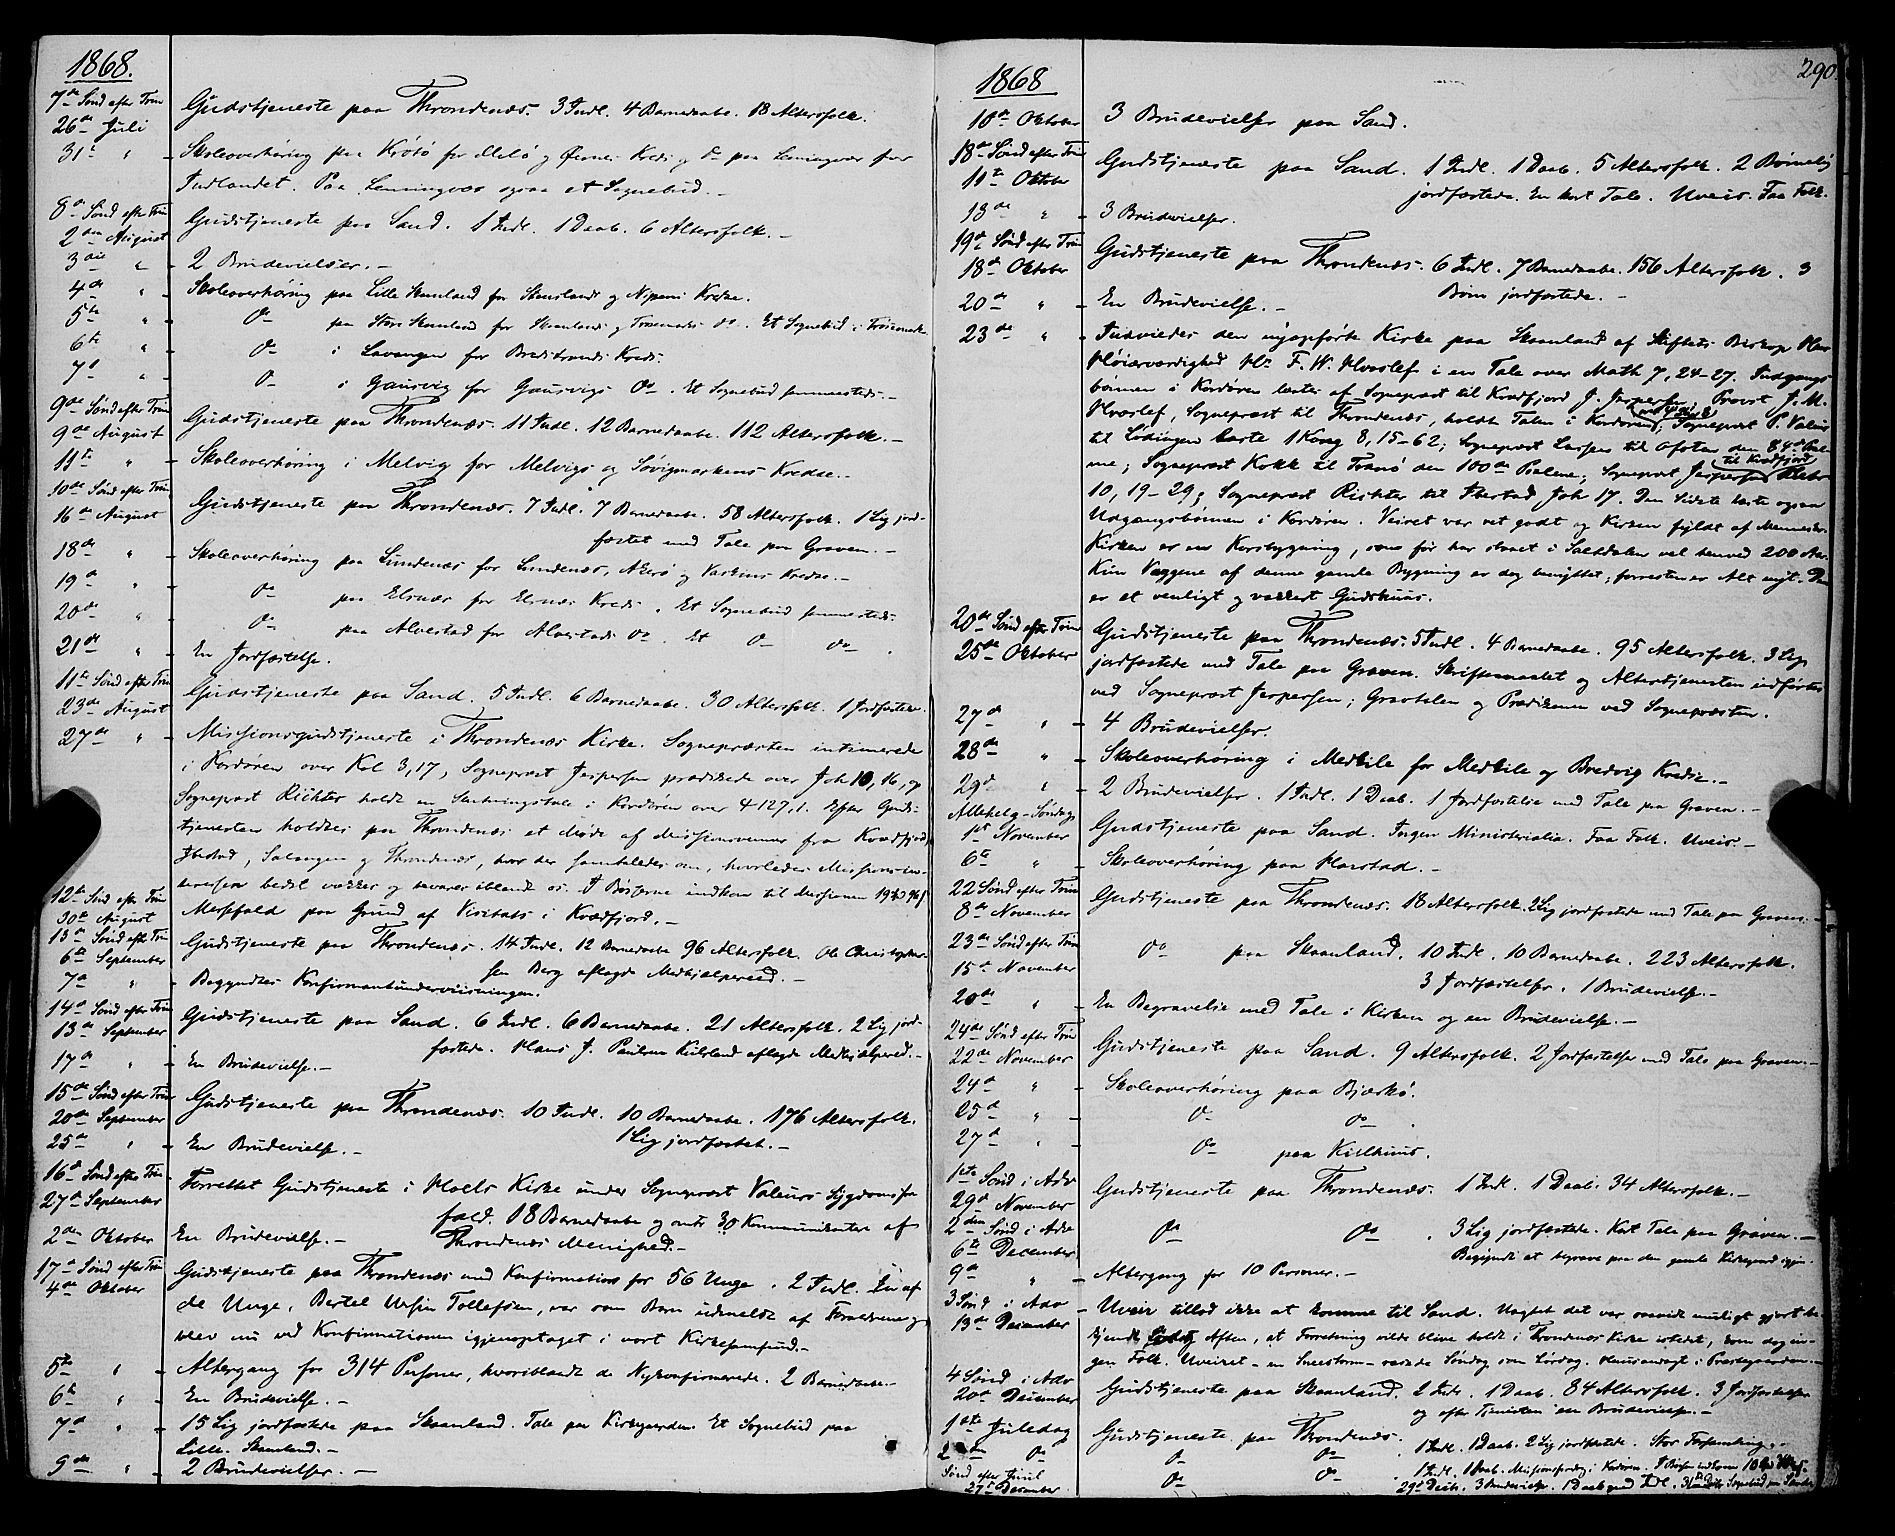 1868.
7de Sønd efter Trin
26de Juli
Gudstjeneste paa Throndenæs. 3 Indl. 4 Barnedaabe. 18 Altersfolk.
31te " - Skoleoverhøring paa Krøtø for Melø og Kreds og Do paa Lemmingvær for
Indlandet. Paa Lemmingvær ogsaa et Sognebud. -
8de Sønd efter Trin
2den August
Gudstjeneste paa Sand. 1 Indl. 1 Daab. 6 Altersfolk. -
3die " - 2 Brudevielser. -
4de " - Skoleoverhøring paa Lille Skanland for Skanlands og Nipens Kredse.
5te " - Do paa Store Skanland for Skanlands og Do. Et Sognebud i
6te " - Do i Lavangen for Bredstrands Kreds.
7de " - Do i Gausvig for Gausvigs Do. Et Sognebud sammesteds. -
9de Sønd efter Trin
9de August
Gudstjeneste paa Throndenæs. 11 Indl. 12 Barnedaabe. 112 Altersfolk. -
11te " - Skoleoverhøring i Melvig for Melvigs og Søvigmarkens Kredse. -
10de Sønd efter Trin
16de August
Gudstjeneste paa Throndenæs. 7 Indl. 7 Barnedaabe. 58 Altersfolk. 1 Lig jord-
fæstet med Tale paa Graven. -
18de " - Skoleoverhøring paa Lundenæs for Lundenæs, Akerø og Kredse. -
19de " - Do paa Elsnæs for Elsnæs Kreds. Et Sognebud sammesteds.
20de " - Do paa Alvestad for Alvestads Do. Et Do Do.
21de " - En Jordfæstelse.
11te Sønd efter Trin
23de August
Gudstjeneste paa Sand. 5 Indl. 6 Barnedaabe. 30 Altersfolk. 1 Jordfæstelse.
27de " - Missionsgudstjeneste i Throndenæs Kirke. Sognepræsten intimerede
i Kordøren over Kol 3,17, Sognepræst Jespersen prædikede over Joh 10,16, og
Sognepræst Richter holdt en Slutningstale i Kordøren over 127,1. Efter Guds-
tjenesten holdtes paa Throndenæs et Møde af Missionsvenner fra Kvædfjord,
Ibestad, Salangen og Throndenæs, hvor der samtaledes om, hvorledes Missionsin-
teressen bedst vækkes og bevares iblandt os. I Bøsserne indkom til Missionen
12te Sønd efter Trin
30te August
Messefald paa Grund af Visitats i Kvædfjord. -
13de Sønd efter Trin
6te September
Gudstjeneste paa Throndenæs. 14 Indl. 12 Barnedaabe 96 Altersfolk. Ole Christopher-
sen Berg aflagde Medhjælpereed. -
7de " - Begyndtes Konfirmantundervisningen.
14de Sønd efter Trin
13de September
Gudstjeneste paa Sand. 6 Indl. 6 Barnedaabe. 21 Altersfolk. 2 Lig jord-
fæstede. Hans J. Paulsen aflagde Medhjælpereed. -
17de " - En Brudevielse. -
15de Sønd efter Trin
20de September
Gudstjeneste paa Throndenæs. 10 Indl. 10 Barnedaabe. 176 Altersfolk.
1 Lig jordfæstet. -
25de " - En Brudevielse. -
16de Sønd efter Trin
27de September
Forrettet Gudstjeneste i Hols Kirke under Sognepræst Valeurs Sygdomsfor-
fald. 18 Barnedaabe og omtr 30 Kommunikanter af
Throndenæs Menighed. -
2den Oktober En Brudevielse. -
17de Sønd efter Trin
4de Oktober
Gudstjeneste paa Throndenæs med Konfirmation for 56 Unge. 2 Indl. En af
de Unge, Bertel Ursin Tollefsen, var som Barn udmeldt af Forældrene og
blev nu ved Konfirmationen igjenoptaget i vort Kirkesamfund. -
5te " - Altergang for 314 Personer, hvoriblandt de Nykonfirmerede. 2 Barnedaabe.
6te " - En Brudevielse. -
7de " - 15 Lig jordfæstede paa Skaanland. Tale paa Kirkegaarden. Et Sognebud paa
Lille-Skanland. -
9de " - 2 Brudevielser. -
290.
1868
10de Oktober 3 Brudevielser paa Sand.
18de Sønd efter Trin
11te Oktober
Gudstjeneste paa Sand. 1 Indl. 1 Daab. 5 Altersfolk. 2 Børnelig
jordfæstede. En kort Tale. Uveir. Faa Folk.
13de " - 3 Brudevielser.
19de Sønd efter Trin
18de Oktober
Gudstjeneste paa Throndenæs. 6 Indl. 7 Barnedaabe. 156 Altersfolk. 3
Børn jordfæstede. -
20de " - En Brudevielse. -
23de " - Indviedes den nyopførte Kirke paa Skaanland af Stiftets Biskop Hans
Høiærværdighed Hr. F. W. Hvoslef i en Tale over Math 7, 24-27. Indgangs-
bønnen i Kordøren læstes af Sognepræst til Kvædfjord J. Jespersen, Provst J. M.
Hvoslef, Sognepræst til Throndenæs, holdt Talen i Kordøren, Sognepræst P. Valeur
til Lødingen læste 1 Kong 8, 15-62; Sognepræst Larssen til Ofoten den 84de Psal-
me; Sognepræst Kokk til Tranø den 100de Psalme; Sognepræst Jespersen til Kvædfjord Hebr
10, 19-29; Sognepræst Richter til Ibestad Joh 17. Den sidste læste ogsaa
Udgangsbønnen i Kordøren. Veiret var ret godt og Kirken fyldt af Mennesker.
Kirken er en Korsbygning, som før har staaet i Saltdalen vel henved 200 Aar.
Kun Væggene af denne gamle Bygning er dog benyttet; forresten er Alt nyt. Den
er et venligt og vakkert Gudshuus.
20de Sønd efter Trin
25de Oktober
Gudstjeneste paa Throndenæs. 5 Indl. 4 Barnedaabe. 95 Altersfolk. 3 Lig
jordfæstede med Tale paa Graven. Skriftemaalet og Altertjenesten udførtes
ved Sognepræst Jespersen; Gravtalen og Prædikenen ved Sognepræsten.
27de " - 4 Brudevielser.
28de " - Skoleoverhøring i Medkile for Medkile og Bredvig Kredse. -
29de " - 2 Brudevielser. 1 Indl. 1 Daab. 1 Jordfæstelse med Tale paa Graven. -
Allehelg-Søndag
1ste November
Gudstjeneste paa Sand. Ingen Ministerialia. Faa Folk. Uveir. -
6te " - Skoleoverhøring paa Harstad. -
22 Sønd efter Trin
8de November
Gudstjeneste paa Throndenæs. 18 Altersfolk. 2 Lig jordfæstede med Tale paa Graven. -
23de Sønd efter Trin
15de November
Do paa Skaanland. 10 Indl. 10 Barnedaabe. 223 Altersfolk.
3 Jordfæstelser. 1 Brudevielse. -
20de " - En Begravelse med Tale i Kirken og en Brudevielse. -
24de Sønd efter Trin
22de November
Gudstjeneste paa Sand. 9 Altersfolk. 2 Jordfæstelser med Tale paa Graven. -
24de " - Skoleoverhøring paa Bjærkø.
25de " - Do Do.
27de " - Do paa Kilhuus.
1ste Sønd i Adv
29de November
Gudstjeneste paa Throndenæs. 1 Indl. 1 Daab. 34 Altersfolk. -
2den Sønd i Adv
6te December
Do Do. 3 Lig jordfæstede. Kort Tale paa Graven. -
Begyndt at begrave paa den gamle Kirkegaard igjen.
9de " - Altergang for 10 Personer. -
3 Sønd i Adv
13de December
Uveir tillod ikke at komme til Sand. Uagtet det var saavidt muligt gjort be-
kjendt Lørdag Aften, at Forretning vilde blive holdt i Throndenæs Kirke istedet, kom dog in-
gen Folk. Uveiret - en Sneestorm - rasede Søndag som Lørdag. Huusandagt i Præstegaarden. -
4 Sønd i Adv
20de December
Gudstjeneste paa Skaanland. 2 Indl. 1 Daab. 84 Altersfolk. 3 Jordfæstelser
og efter Tjenesten en Brudevielse. -
1ste Juledag
Gudstjeneste paa Throndenæs. 1 Indl. 1 Daab. 2 Lig jordfæstede. Stor Forsamling. -
2den Do Do Do. 1 Indl. 1 Daab. Missionsforedrag i Kordøren. I Bøssen indkom
Sønd efter Juul
27de December
Do Do. 29de Decbr. 3 Brudevielser. 1 Daab med Indl. Sognebud paa